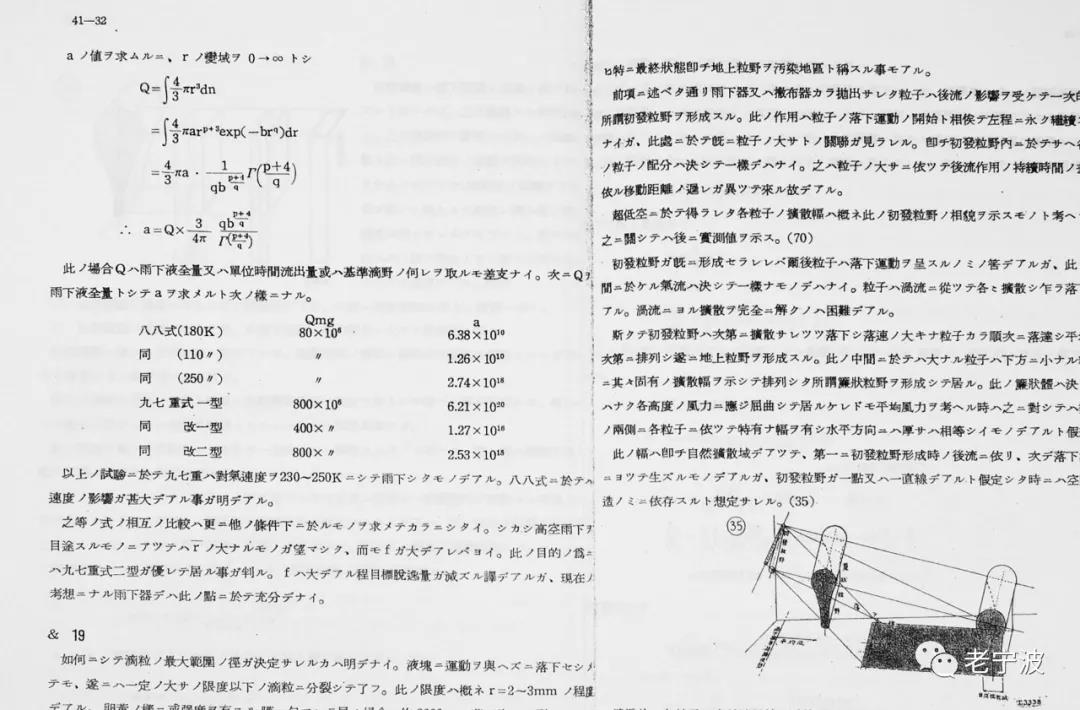 41—32
a ノ値ヲ求ムルニ、r ノ變域ヲ 0→∞ トシ
Q=∫4/3 πr³dn
=∫4/3 πar^(p+3)exp(−br^q)dr
=4/3 πa · 1/(qb^((p+4)/q)) Γ((p+4)/q)
∴ a=Q×3/4π · qb^((p+4)/q)/Γ((p+4)/q)
此ノ場合Qハ雨下液全量又ハ單位時間流出量或ハ基準滴野ノ何レヲ取ルモ差支ナイ。次ニQヲ
雨下液全量トシテaヲ求メルト次ノ樣ニナル。
Qmg a
八八式(180K) 80×10⁶ 6.38×10¹⁰
同 (110〃) 〃 1.26×10¹⁰
同 (250〃) 〃 2.74×10¹⁸
九七重式一型 800×10⁶ 6.21×10²⁰
同 改一型 400×〃 1.27×10¹⁶
同 改二型 800×〃 2.53×10¹⁵
以上ノ試驗ニ於テ九七重ハ對氣速度ヲ230~250Kニシテ雨下シタモノデアル。八八式ニ於テハ
速度ノ影響ガ甚大デアル事ガ明デアル。
之等ノ式ノ相互ノ比較ハ更ニ他ノ條件下ニ於ルモノヲ求メテカラニシタイ。シカシ高空雨下ヲ
目途スルモノニアツテハr̄ノ大ナルモノガ望マシク、而モfガ大デアレバヨイ。此ノ目的ノ爲ニ
ハ九七重式二型ガ優レテ居ル事ガ判ル。fハ大デアル程目標脫逸量ガ減ズル譯デアルガ、現在ノ
考想ニナル雨下器デハ此ノ點ニ於テ充分デナイ。
& 19
如何ニシテ滴粒ノ最大範圍ノ徑ガ決定サレルカハ明デナイ。液塊ニ運動ヲ與ヘズニ落下セシメ
テモ、遂ニハ一定ノ大サノ限度以下ノ滴粒ニ分裂シテ了フ。此ノ限度ハ槪ネr=2~3mmノ程度
ヒ特ニ最終狀態卽チ地上粒野ヲ汚染地區ト稱スル事モアル。
前項ニ述ベタ通リ雨下器又ハ撒布器カラ拋出サレタ粒子ハ後流ノ影響ヲ受ケテ一次的
所謂初發粒野ヲ形成スル。此ノ作用ハ粒子ノ落下運動ノ開始ト相俟テ左程ニ永ク繼續
ナイガ、此處ニ於テ既ニ粒子ノ大サトノ關聯ガ見ラレル。卽チ初發粒野內ニ於テサヘ
ノ粒子ノ配分ハ決シテ一樣デハナイ。之ハ粒子ノ大サニ依ツテ後流作用ノ持續時間ノ
依ル移動距離ノ遲レガ異ツテ來ル故デアル。
超低空ニ於テ得ラレタ各粒子ノ擴散幅ハ槪ネ此ノ初發粒野ノ相貌ヲ示スモノト考ヘ
之ニ關シテハ後ニ實測値ヲ示ス。(70)
初發粒野ガ既ニ形成セラレレバ爾後粒子ハ落下運動ヲ呈スルノミノ筈デアルガ、此
間ニ於ケル氣流ハ決シテ一樣ナモノデハナイ。粒子ハ渦流ニ從ツテ各ヒ擴散シ乍ラ落
アル。渦流ニヨル擴散ヲ完全ニ解クノハ困難デアル。
斯クテ初發粒野ハ次第ニ擴散サレツツ落下シ落速ノ大キナ粒子カラ順次ニ落達シ平
次第ニ排列シ遂ニ地上粒野ヲ形成スル。此ノ中間ニ於テハ大ナル粒子ハ下方ニ小ナル
ニ其々固有ノ擴散幅ヲ示シテ排列シタ所謂簾狀粒野ヲ形成シテ居ル。此ノ簾狀體ハ決
ハナク各高度ノ風力ニ應ジ屈曲シテ居ルケレドモ平均風力ヲ考ヘル時ハ之ニ對シテハ
ノ兩側ニ各粒子ニ依ツテ特有ナ幅ヲ有シ水平方向ニハ厚サハ相等シイモノデアルト假
此ノ幅ハ卽チ自然擴散域デアツテ、第一ニ初發粒野形成時ノ後流ニ依リ、次デ落下
ニヨツテ生ズルモノデアルガ、初發粒野ガ一點又ハ一直線デアルト假定シタ時ニハ空
造ノミニ依存スルト想定サレル。(35)
㉟
老宁波